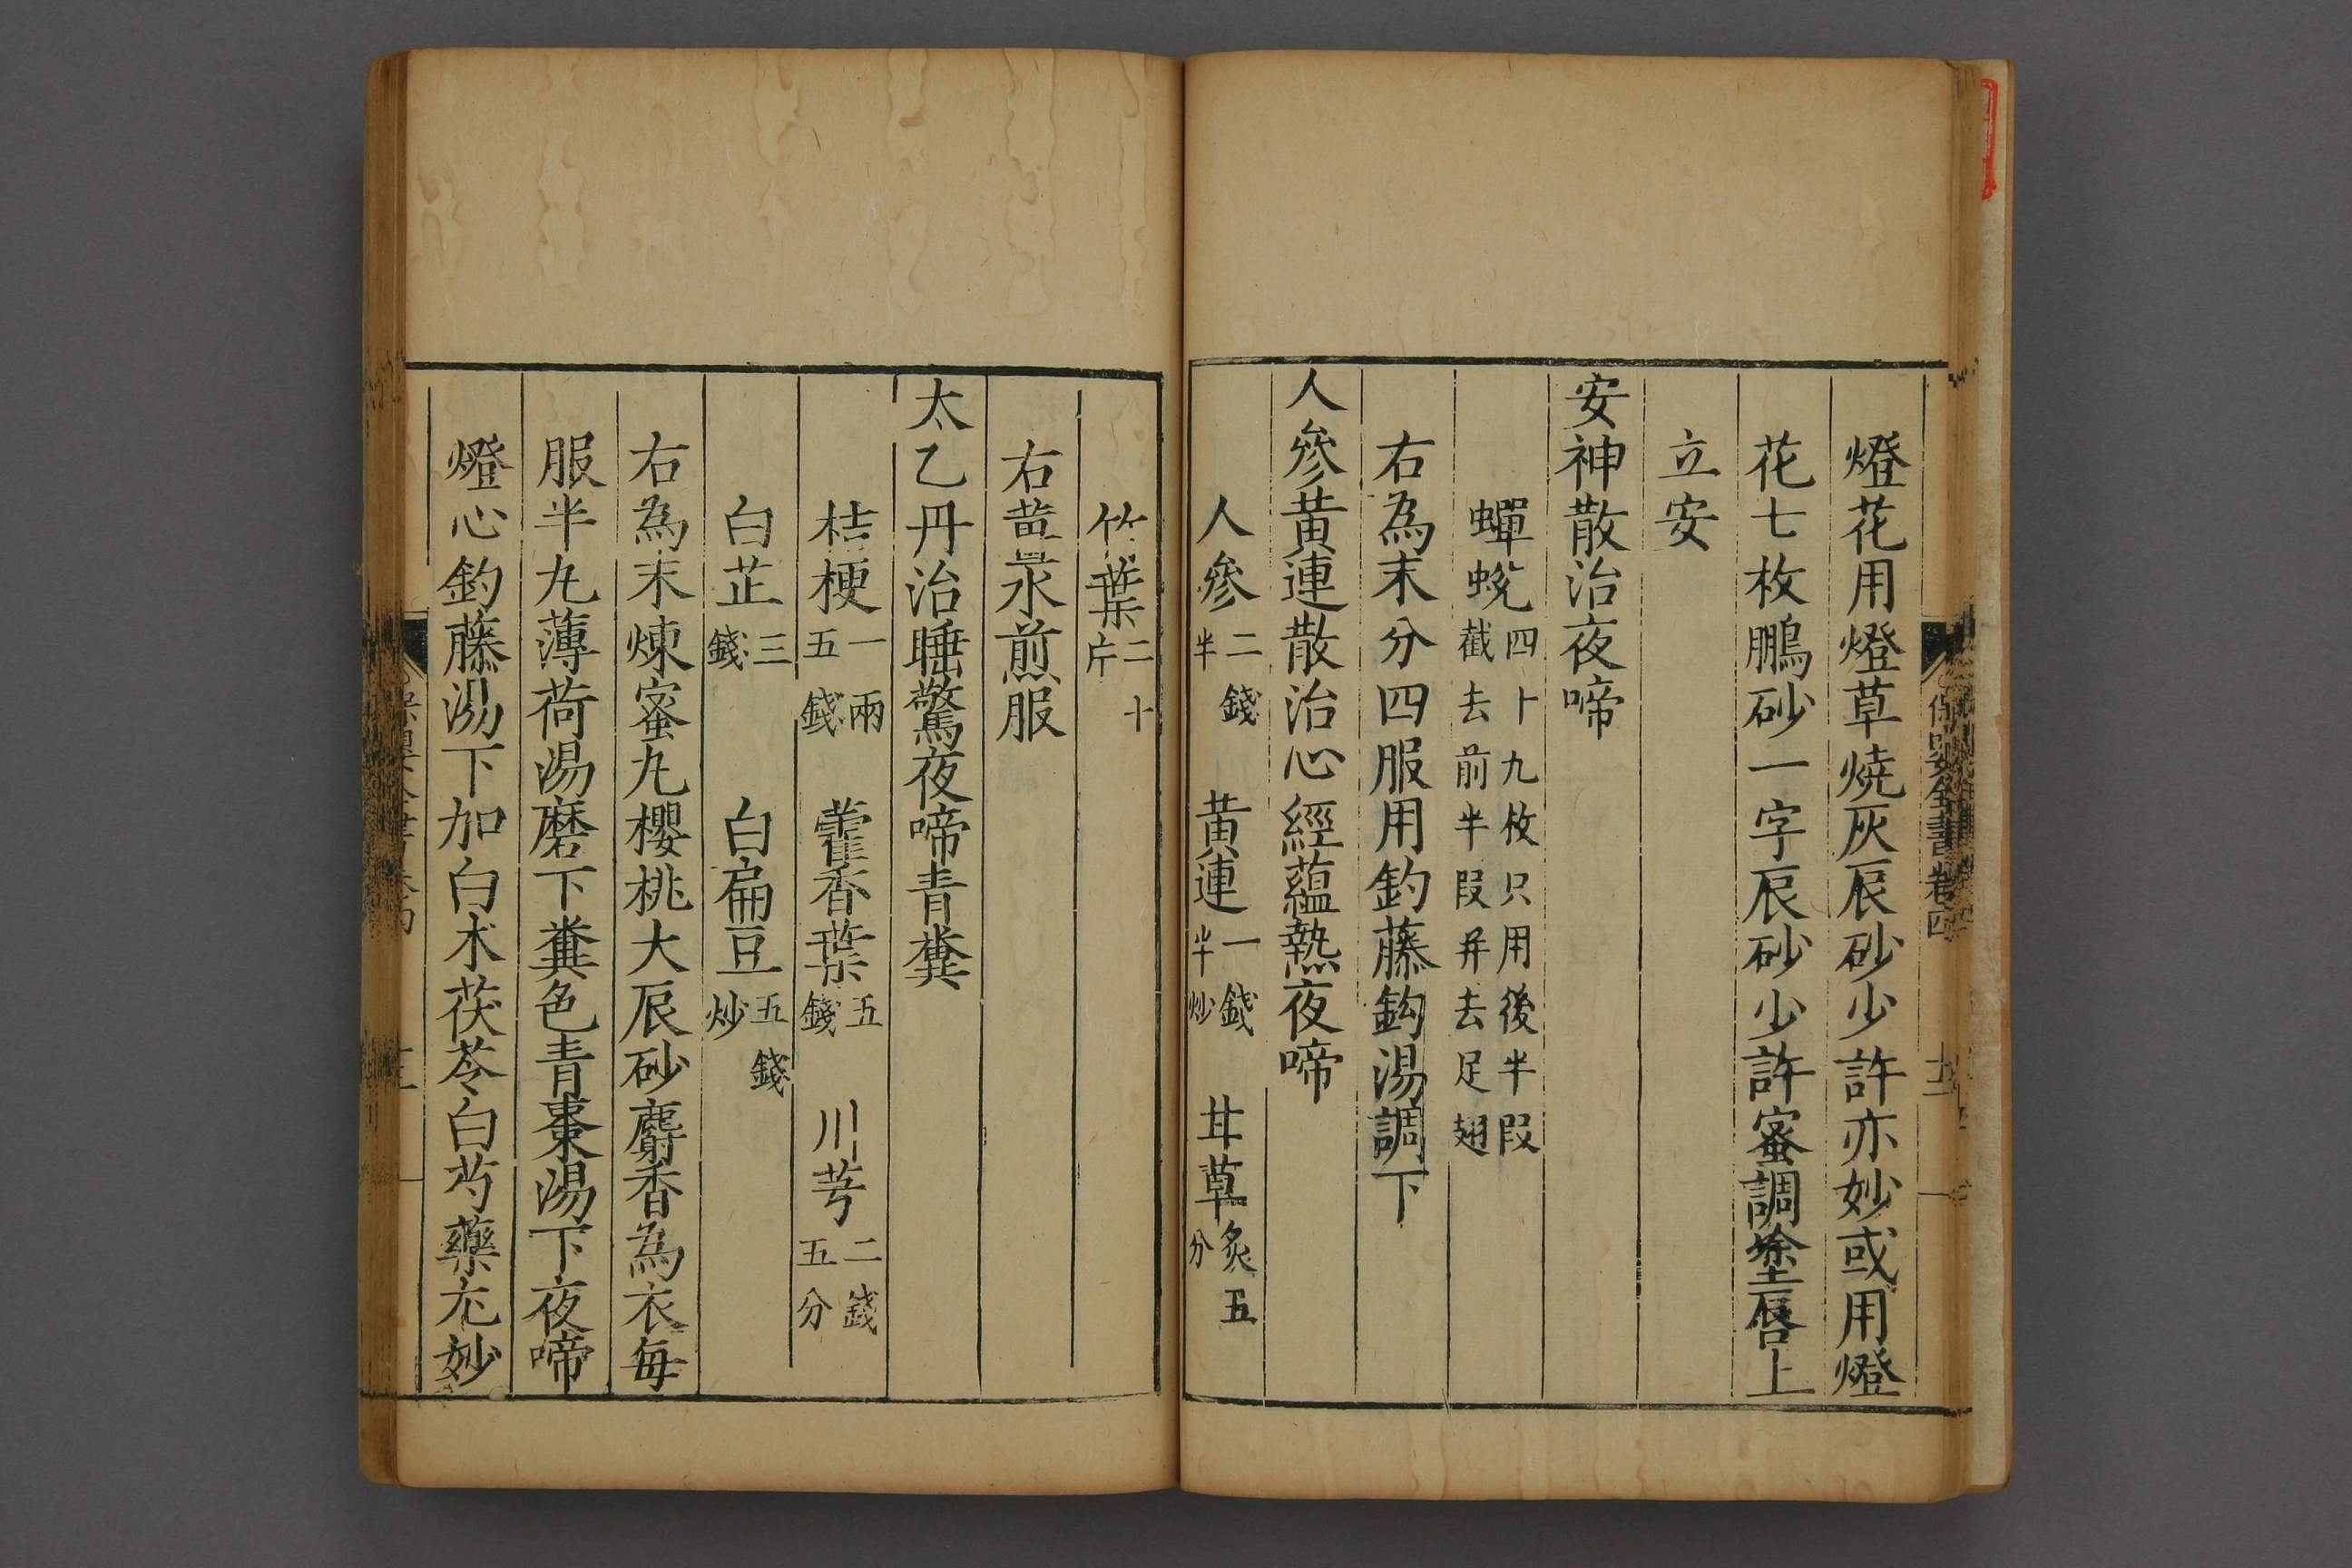 燈花用燈草燒灰辰砂少許亦妙或用燈
花七枚鵬砂一字辰砂少許蜜調塗唇上
立安
安神散治夜啼
蟬蛻四十九枚只用後半段截去前半段并去足翅
右為末分四服用釣藤鈎湯調下
人參黃連散治心經蘊熱夜啼
人參二錢半 黃連一錢半炒 甘草炙五分
竹葉二十片
右薑水煎服
太乙丹治睡驚夜啼青糞
桔梗一兩五錢 藿香葉五錢 川芎二錢五分
白芷三錢 白扁豆五錢炒
右為末煉蜜丸櫻桃大辰砂麝香為衣每
服半丸薄荷湯磨下糞色青棗湯下夜啼
燈心釣藤湯下加白朮茯苓白芍藥尤妙
保嬰全書卷四